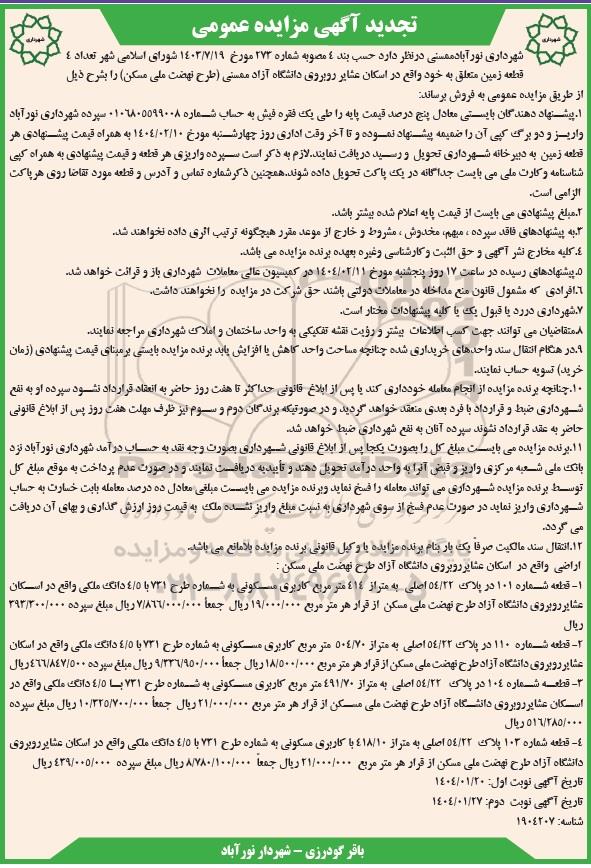 تجدید آگهی مزایده عمومی
شهرداری
شهرداری
شهرداری نورآبادممسنی درنظر دارد حسب بند ٤ مصوبه شماره ۲۷۳ مورخ ۱۴۰۳/۷/۱۹ شورای اسلامی شهر تعداد ٤
قطعه زمین متعلق به خود واقع در اسکان عشایر روبروی دانشگاه آزاد ممسنی (طرح نهضت ملی مسکن) را بشرح ذیل
از طریق مزایده عمومی به فروش برساند:
۱.پیشنهاد دهندگان بایستی معادل پنج درصد قیمت پایه را طی یک فقره فیش به حساب شماره ۰۱۰۶۸۰۵۵۹۹۰۰۸ سپرده شهرداری نورآباد
واریز و دو برگ کپی آن را ضمیمه پیشنهاد نموده و تا آخر وقت اداری روز چهارشنبه مورخ ۱۴۰۴/۰۲/۱۰ به همراه قیمت پیشنهادی هر
قطعه زمین به دبیرخانه شهرداری تحویل و رسید دریافت نمایند.لازم به ذکر است سپرده واریزی هر قطعه و قیمت پیشنهادی به همراه کپی
شناسنامه وکارت ملی می بایست جداگانه در یک پاکت تحویل داده شوند.همچنین ذکرشماره تماس و آدرس و قطعه مورد تقاضا روی هرپاکت
الزامی است.
۲.مبلغ پیشنهادی می بایست از قیمت پایه اعلام شده بیشتر باشد.
۳.به پیشنهادهای فاقد سپرده ، مبهم، مخدوش ، مشروط و خارج از موعد مقرر هیچگونه ترتیب اثری داده نخواهند شد.
۴.کلیه مخارج نشر آگهی و حق الثبت وکارشناسی وغیره بعهده برنده مزایده می باشد.
۵.پیشنهادهای رسیده در ساعت ۱۷ روز پنجشنبه مورخ ۱۴۰۴/۰۲/۱۱ در کمیسیون عالی معاملات شهرداری باز و قرائت خواهد شد.
۶.افرادی که مشمول قانون منع مداخله در معاملات دولتی باشند حق شرکت در مزایده را نخواهند داشت.
۷.شهرداری دررد یا قبول یک یا کلیه پیشنهادات مختار است.
۸.متقاضیان می توانند جهت کسب اطلاعات بیشتر و رؤیت نقشه تفکیکی به واحد ساختمان و املاک شهرداری مراجعه نمایند.
۹.در هنگام انتقال سند واحدهای خریداری شده چنانچه مساحت واحد کاهش یا افزایش یابد برنده مزایده بایستی برمبنای قیمت پیشنهادی (زمان
خرید) تسویه حساب نمایند.
۱۰.چنانچه برنده مزایده از انجام معامله خودداری کند یا پس از ابلاغ قانونی حداکثر تا هفت روز حاضر به انعقاد قرارداد نشود سپرده او به نفع
شهرداری ضبط و قرارداد با فرد بعدی منعقد خواهد گردید و در صورتیکه برندگان دوم و سوم نیز ظرف مهلت هفت روز پس از ابلاغ قانونی
حاضر به عقد قرارداد نشوند سپرده آنان به نفع شهرداری ضبط خواهد شد.
۱۱.برنده مزایده می بایست مبلغ کل را بصورت یکجا پس از ابلاغ قانونی شهرداری بصورت وجه نقد به حساب درآمد شهرداری نورآباد نزد
بانک ملی شعبه مرکزی واریز و فیش آنرا به واحد درآمد تحویل دهند و تأییدیه دریافت نمایند و در صورت عدم پرداخت به موقع مبلغ کل
توسط برنده مزایده شهرداری می تواند معامله را فسخ نماید وبرنده مزایده می بایست مبلغی معادل ده درصد معامله بابت خسارت به حساب
شهرداری واریز نماید در صورت عدم فسخ از سوی شهرداری به نسبت مبلغ واریز نشده ملک به قیمت روز ارزش گذاری و بهای آن دریافت
می گردد.
۱۲.انتقال سند مالکیت صرفاً یک بار بنام برنده مزایده یا وکیل قانونی برنده مزایده بلامانع می باشد.
اراضی واقع در اسکان عشایرروبروی دانشگاه آزاد طرح نهضت ملی مسکن :
۱- قطعه شماره ۱۰۱ در پلاک ۵۴/۲۲ اصلی به متراژ ۴۱۴ متر مربع کاربری مسکونی به شماره طرح ۷۳۱ با ۴/۵ دانگ ملکی واقع در اسکان
عشایرروبروی دانشگاه آزاد طرح نهضت ملی مسکن از قرار هر متر مربع ۱۹/۰۰۰/۰۰۰ ریال جمعاً ۷/۸۶۶/۰۰۰/۰۰۰ ریال مبلغ سپرده ۳۹۳/۳۰۰/۰۰۰
ریال
۲- قطعه شماره ۱۱۰ در پلاک ۵۴/۲۲ اصلی به متراژ ۵۰۴/۷۰ متر مربع کاربری مسکونی به شماره طرح ۷۳۱ با ۴/۵ دانگ ملکی واقع در اسکان
عشایرروبروی دانشگاه آزاد طرح نهضت ملی مسکن از قرار هر متر مربع ۱۸/۵۰۰/۰۰۰ ریال جمعاً ۹/۳۳۶/۹۵۰/۰۰۰ ریال مبلغ سپرده ۴۶۶/۸۴۷/۵۰۰ریال
۳- قطعه شماره ۱۰۴ در پلاک ۵۴/۲۲ اصلی به متراژ ۴۹۱/۷۰ متر مربع کاربری مسکونی به شماره طرح ۷۳۱ با ۴/۵ دانگ ملکی واقع در
اسکان عشایرروبروی دانشگاه آزاد طرح نهضت ملی مسکن از قرار هر متر مربع ۲۱/۰۰۰/۰۰۰ ریال جمعاً ۱۰/۳۲۵/۷۰۰/۰۰۰ ریال مبلغ سپرده
۵۱۶/۲۸۵/۰۰۰ ریال
۴- قطعه شماره ۱۰۳ پلاک ۵۴/۲۲ اصلی به متراژ ۴۱۸/۱۰ با کاربری مسکونی به شماره طرح ۷۳۱ با ۴/۵ دانگ ملکی واقع در اسکان عشایرروبروی
دانشگاه آزاد طرح نهضت ملی مسکن از قرار هر متر مربع ۲۱/۰۰۰/۰۰۰ ریال جمعاً ۸/۷۸۰/۱۰۰/۰۰۰ ریال مبلغ سپرده ۴۳۹/۰۰۵/۰۰۰ ریال
تاریخ آگهی نوبت اول: ۱۴۰۴/۰۱/۲۰
تاریخ آگهی نوبت دوم: ۱۴۰۴/۰۱/۲۷
شناسه: ۱۹۰۴۲۰۷
باقر گودرزی – شهردار نورآباد